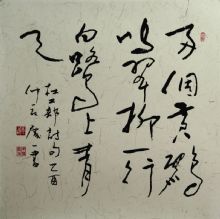 兩個黃鸝
鳴翠柳一行
白鷺上青
天
杜工部詩句乙酉
書